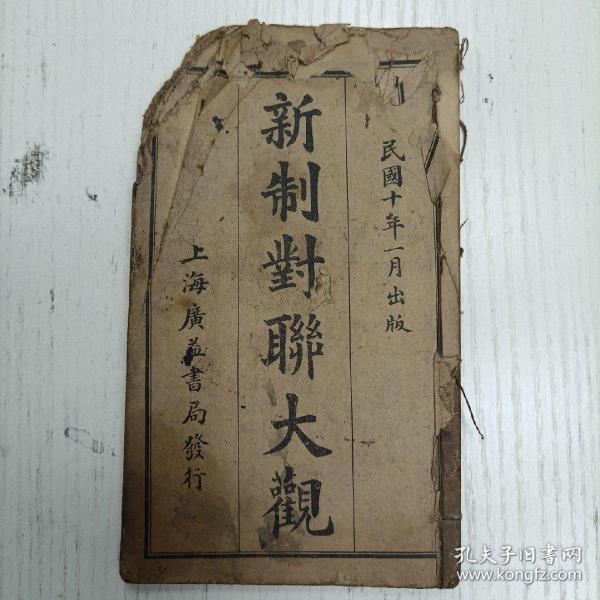 民國十年一月出版
新制對聯大觀
上海廣益書局發行
孔夫子旧书网
www.kongfz.com